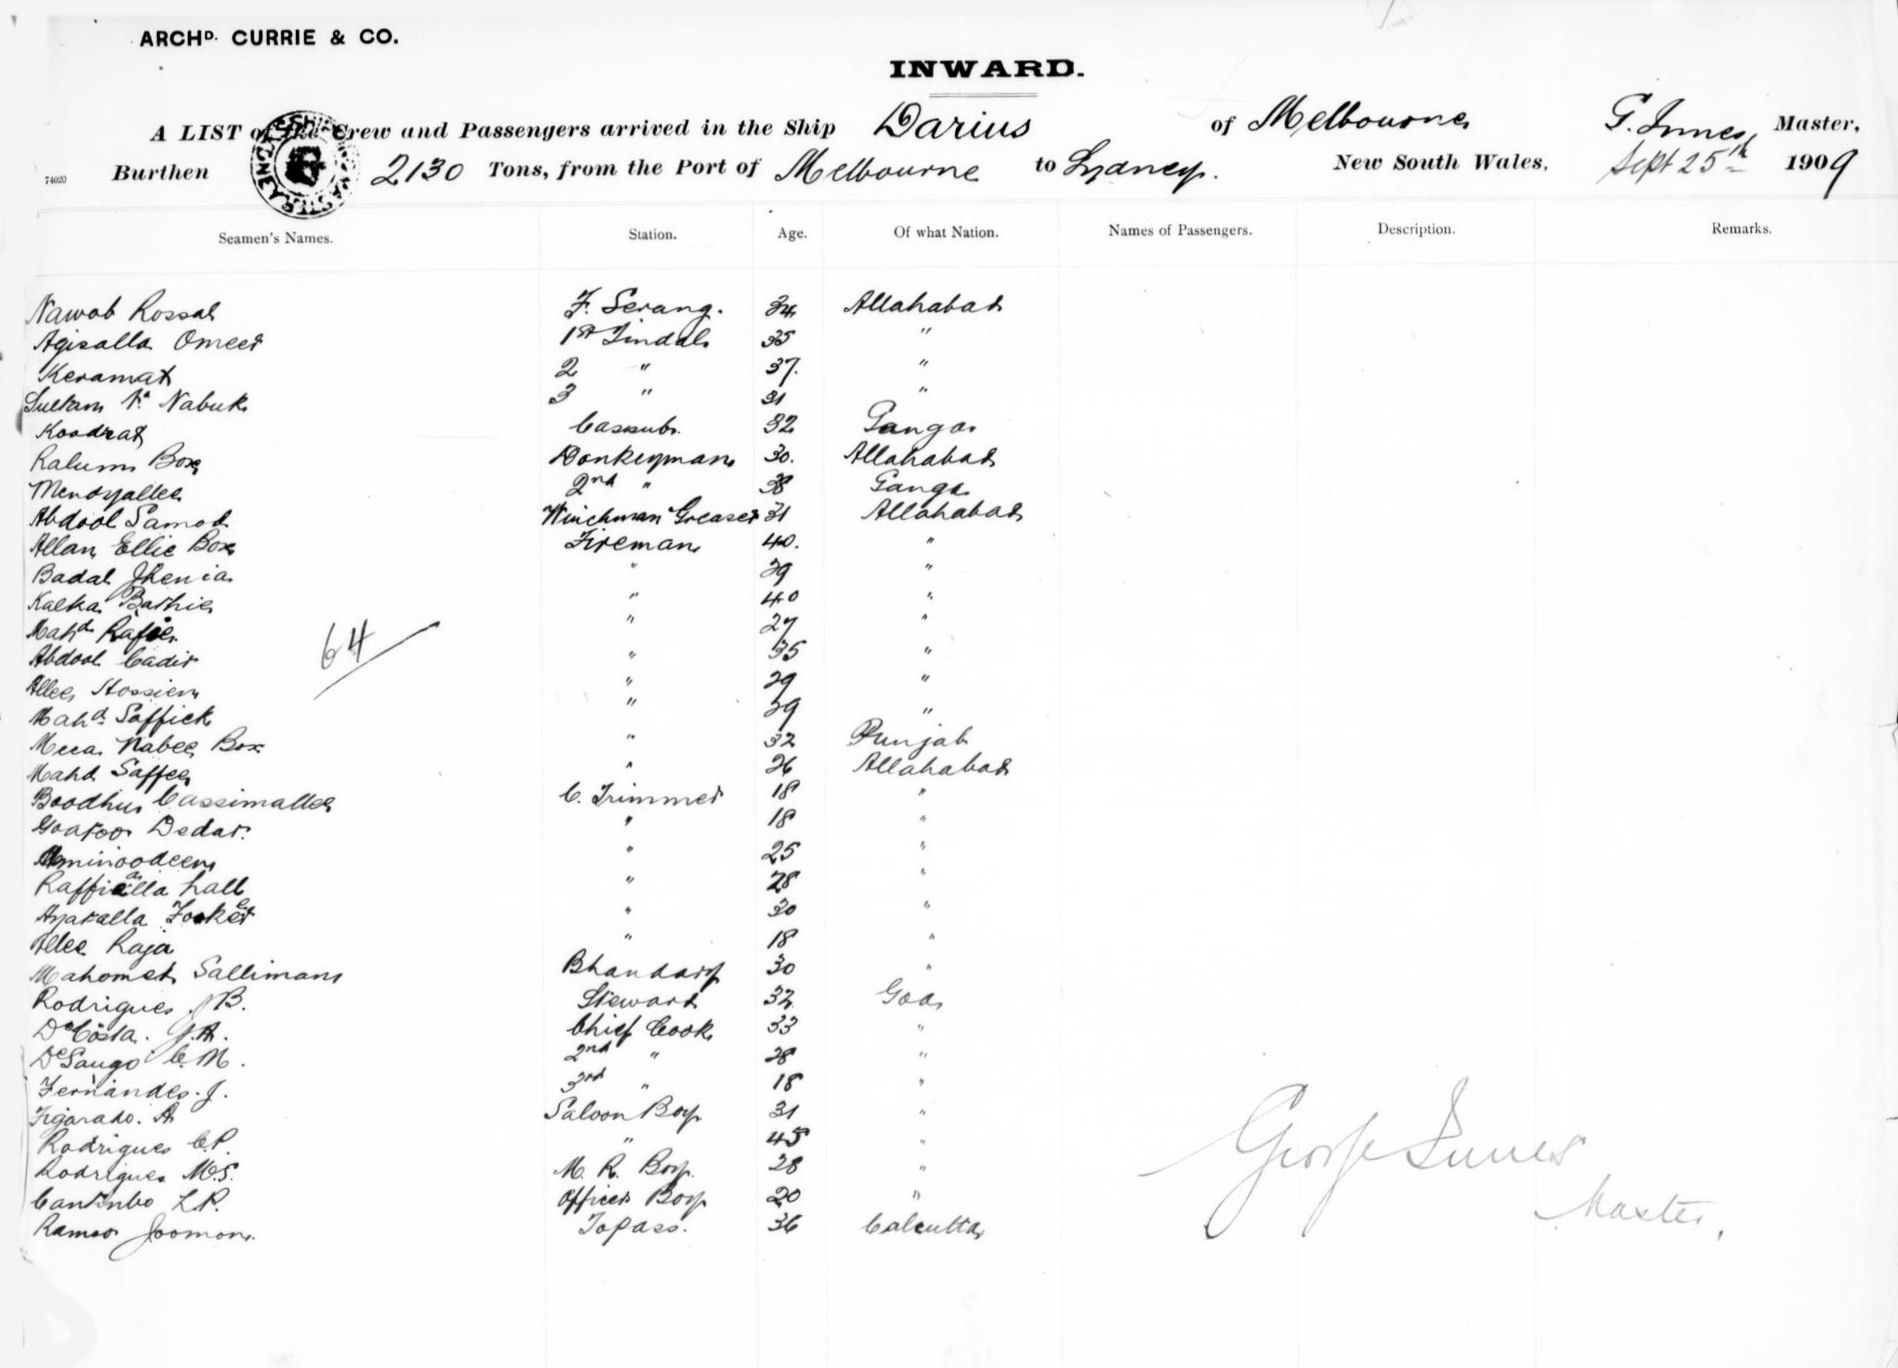 ARCHD. CURRIE & CO.
INWARD.
A LIST of the Crew and Passengers arrived in the Ship Darius of Melbourne G. Innes, Master,
74020 Burthen 2130 Tons, from the Port of Melbourne to Sydney. New South Wales, Sept 25th 1909
Seamen's Names. Station. Age. Of what Nation. Names of Passengers. Description. Remarks.
Nawob Rossal F. Serang. 34 Allahabad
Agisalla Omeer 1st Tindal 35 "
Keramat 2 " 37. "
Sultan Nabuk 3 " 31 "
Koodrat Cassub. 32 Ganga
Ralum Box Donkeyman 30. Allahabad
Mendyallee 2nd " 38 Ganga
Abdool Samod Winchman Greaser 31 Allahabad
Allan Ellie Box Fireman 40. "
Badal Jhenia " 39 "
Kalka Barhie " 40 "
Mahd Rafie " 27 "
64
Abdool Cadir " 35 "
Allee Hossien " 29 "
Mahd Saffick " 39 "
Meea Nabee Box " 32 Punjab
Mahd Saffee " 26 Allahabad
Boodhu Cassimallee C. Trimmer 18 "
Goaroo Dedar. " 18 "
Aminoodeen " 25 "
Raffialla Lall " 28 "
Ayaralla Fooker " 30 "
Allee Raja " 18 "
Mahomet Salliman Bhandary 30 "
Rodrigues J B. Steward 32 Goa
De Costa. J.A. Chief Cook 33 "
De Saugo C. M. 2nd " 28 "
Fernandes. J. 3rd " 18 "
Figarado. A Saloon Boy 31 "
Rodrigues C.P. " 45 "
Rodrigues M.S. M. R. Boy. 28 "
L.P. Officers Boy 20 "
Ramoo Joomon. Topass. 36 Calcutta
George Innes
Master.